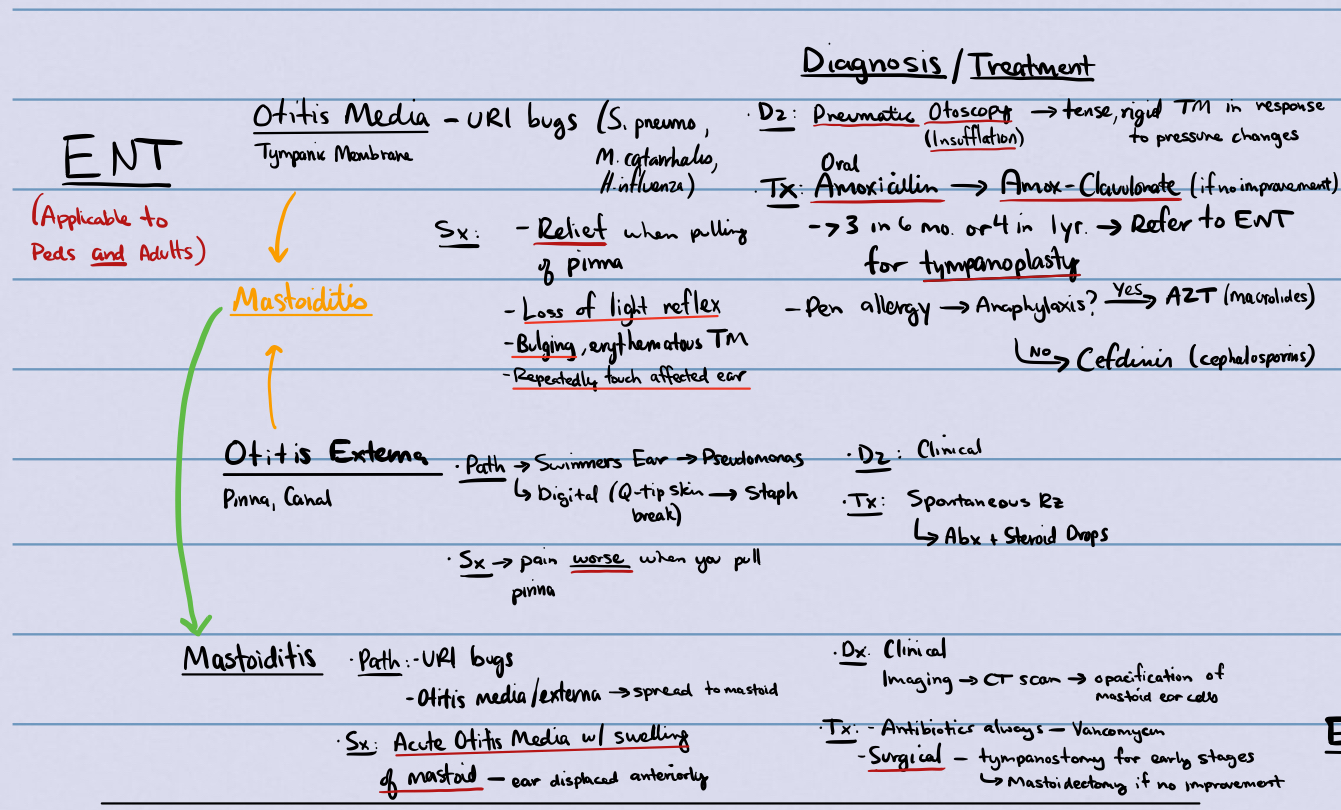 Diagnosis / Treatment
ENT
(Applicable to
Peds and Adults)
Otitis Media - URI bugs (S. pneumo,
Tympanic Membrane
M. catarrhalis,
H. influenza)
Sx: - Relief when pulling
of pinna
- Loss of light reflex
- Bulging, erythematous TM
- Repeatedly touch affected ear
· Dz: Pneumatic Otoscopy → tense, rigid TM in response
(Insufflation) to pressure changes
Oral
· Tx: Amoxicillin → Amox-Clavulonate (if no improvement)
-> 3 in 6 mo. or 4 in 1yr. → Refer to ENT
for tympanoplasty
- Pen allergy → Anaphylaxis? Yes → AZT (macrolides)
No → Cefdinir (cephalosporins)
Mastoiditis
Otitis Externa
Pinna, Canal
· Path → Swimmers Ear → Pseudomonas
↳ Digital (Q-tip skin → Staph
break)
· Sx → pain worse when you pull
pinna
· Dz: Clinical
· Tx: Spontaneous Rz
↳ Abx + Steroid Drops
Mastoiditis
· Path: - URI bugs
- Otitis media/externa → spread to mastoid
· Sx: Acute Otitis Media w/ swelling
of mastoid - ear displaced anteriorly
· Dx: Clinical
Imaging → CT scan → opacification of
mastoid ear cells
· Tx: - Antibiotics always - Vancomycin
- Surgical - tympanostomy for early stages
↳ Mastoidectomy if no improvement